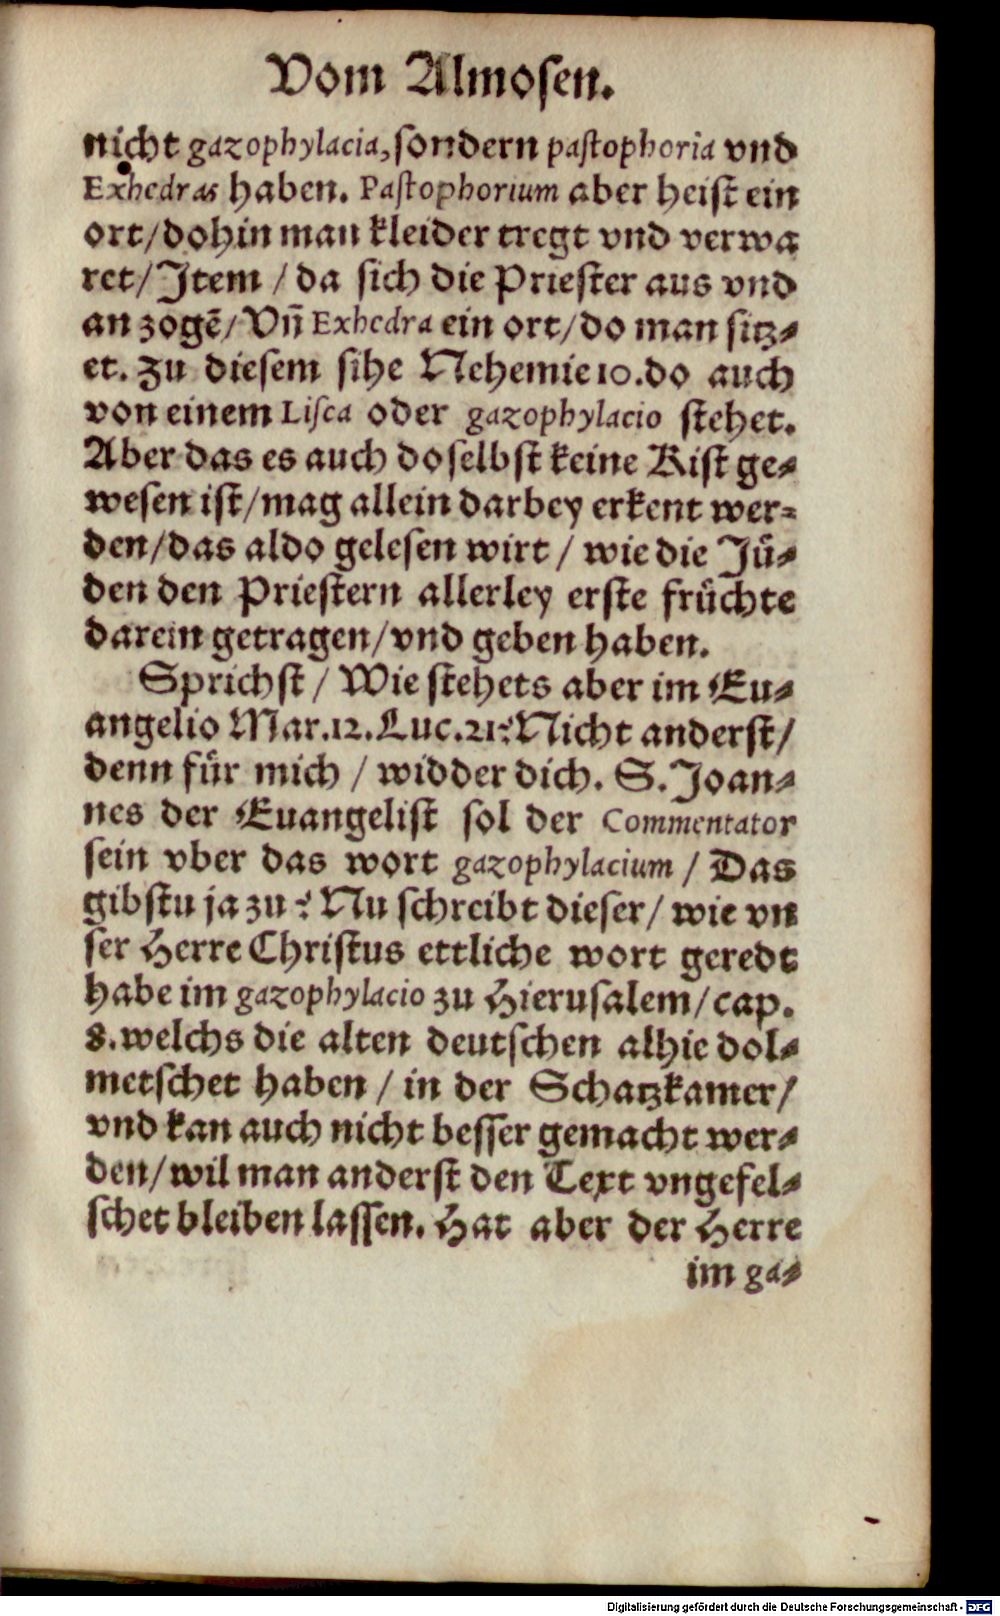 Vom Almosen.
nicht gazophylacia, sondern pastophoria vnd
Exhedras haben. Pastophorium aber heist ein
ort/dohin man kleider tregt vnd verwa
ret/Item / da sich die Priester aus vnd
an zogẽ/ Vñ Exhedra ein ort/do man sitz-
et. Zu diesem sihe Nehemie 10. do auch
von einem Lisca oder gazophylacio stehet.
Aber das es auch doselbst keine Kist ge-
wesen ist/mag allein darbey erkent wer-
den/das aldo gelesen wirt / wie die Jü-
den den Priestern allerley erste früchte
darein getragen/vnd geben haben.
Sprichst / Wie stehets aber im Eu-
angelio Mar.12. Luc.21? Nicht anderst/
denn für mich / widder dich. S. Joan-
nes der Euangelist sol der Commentator
sein vber das wort gazophylacium / Das
gibstu ja zu? Nu schreibt dieser/ wie vn
ser Herre Christus ettliche wort geredt
habe im gazophylacio zu Hierusalem/cap.
8. welchs die alten deutschen alhie dol-
metschet haben / in der Schatzkamer/
vnd kan auch nicht besser gemacht wer-
den/wil man anderst den Text vngefel-
schet bleiben lassen. Hat aber der Herre
im ga-
Digitalisierung gefördert durch die Deutsche Forschungsgemeinschaft - DFG